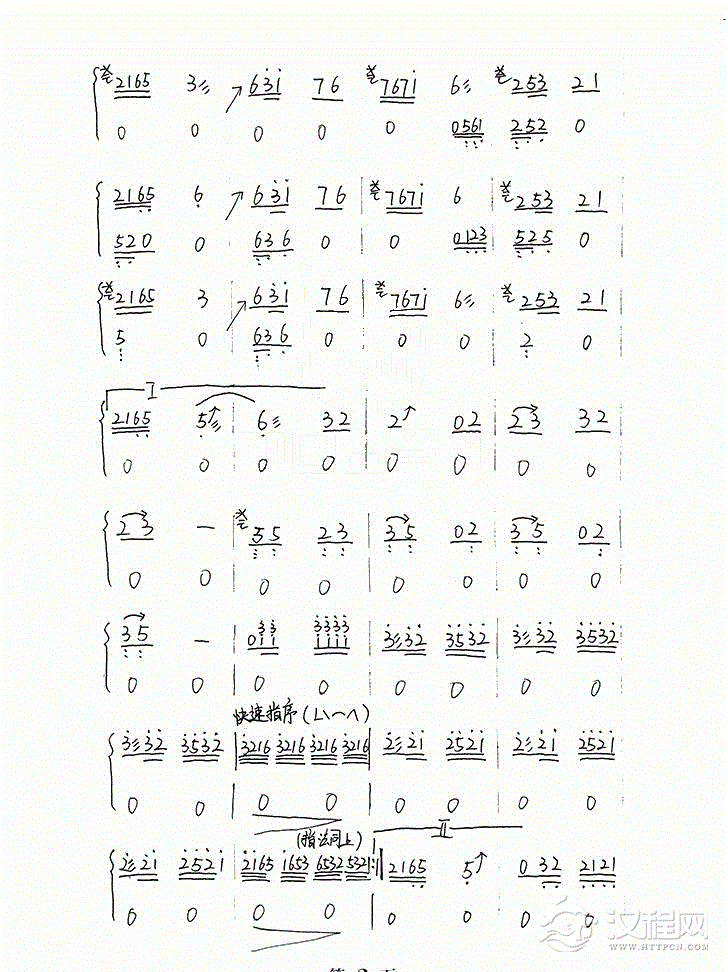 2165 3 631 76 7671 6 253 21
0 0 0 0 0 0561 252 0
2165 6 631 76 7671 6 253 21
520 0 636 0 0 0123 525 0
2165 3 631 76 7671 6 253 21
5 0 636 0 0 0 2 0
I
2165 5 6 32 2 02 23 32
0 0 0 0 0 0 0 0
23 — 55 23 35 02 35 02
0 0 0 0 0 0 0 0
35 — 3532 3532
0 0 0 0 0 0 0 0
快速指序(
3 32 3532 3216 3216 3216 3216 2 21 2521 2 21 2521
0 0 0 0 0 0 0 0
(指法同上) II
2 21 2521 2165 1653 6532 5321 2165 5 0 32 2121
0 0 0 0 0 0 0 0
汉程网
WWW.HTTPCN.COM